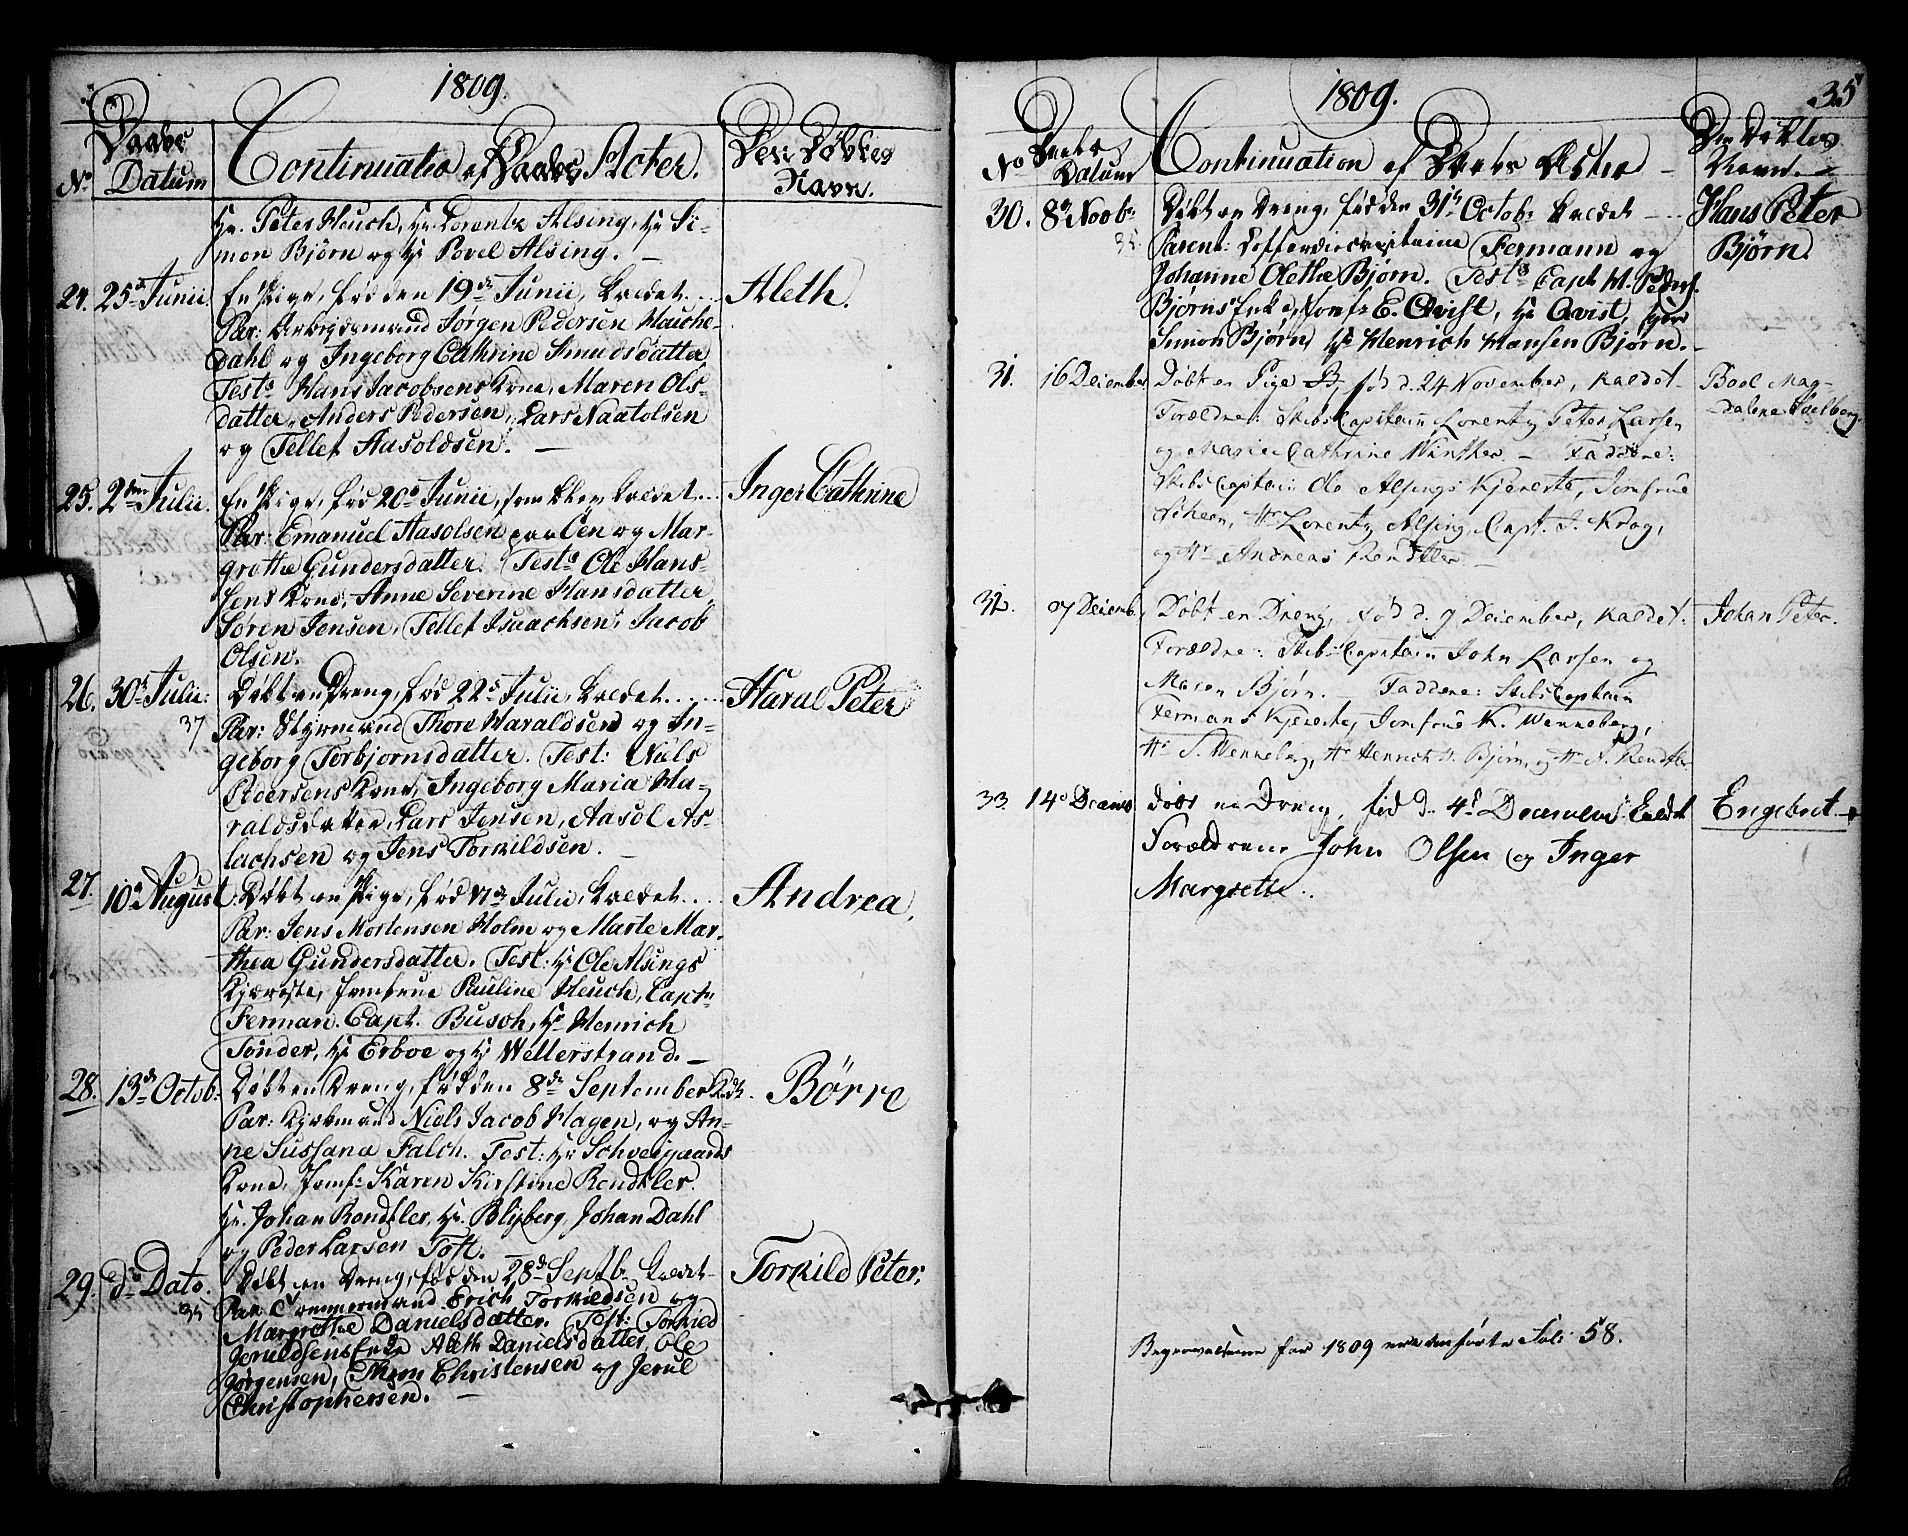 1809.
No
Daabs
Datum
Continuatio af Daabs Acter.
Den Döbtes
Navn.
Hr. Peter Heuch, Hr. Lorentz Alsing, Hr Si-
mon Bjørn og Hr Povel Alsing. —
24. 25de Junii. En Pige, fød den 19de Junii, kaldet.... Aleth.
Par: Arbeidsmand Jørgen Pedersen Hauche-
dahl og Ingeborg Cathrine Smudsdatter
Test: Hans Jacobsens Kone, Maren Ols-
datter, Anders Pedersen, Lars Naatolsen
og Tellef Aasoldsen. —
25. 2den Julii. En Pige, fød 20de Junii, som blev kaldet... Inger Cathrine
Par: Emanuel Aasolsen paa Øen og Mar-
grethe Gundersdatter. Test: Ole Hans-
sens Kone, Anne Severine Hansdatter,
Søren Jensen, Tellef Isaachsen, Jacob
Olsen.
26. 30te Julii: Døbt en Dreng, fød 22de Julii, kaldet...... Haral Peter
37 Par: Styrmand Thore Haraldsen og In-
geborg Torbjørnsdatter. Test: Niels
Pedersens Kone, Ingeborg Maria Ha-
raldsdatter, Lars Jensen, Aasol As-
lachsen og Jens Torkildsen. —
27. 10de August. Døbt en Pige, fød 17de Julii, kaldet.... Andrea,
Par: Jens Mortensen Holm og Marte Mar-
thea Gundersdatter. Test: Hr Ole Alsings
Kjæreste, Jomfrue Pauline Heuch, Captn
Ferman. Capt. Busch, Hr Henrich
Tønder, Hr Erboe og Hr Wellerstrand. —
28. 13de Octob: Døbt en Dreng, fød den 8de September Kaldt. Børre
Par: Kjøbmand Niels Jacob Hagen, og An-
ne Sussana Falch. Test: Hr Schvegaards
Kone, Jomf: Karen Kirstine Rendtler.
Hr. Johan Rendtler, Hr. Blyberg, Johan Dahl
og Peder Larsen Toft.
29. do Dato. Døbt en Dreng, fød den 28de Septb. kaldet Torkild Peter.
35 Par: Tømmermand Erich Torkildsen og
Margrethe Danielsdatter. Test: Torkied
Jeruldsens Enke Aleth Danielsdatter, Ole
Jørgensen, Thom Christensen og Jerul
Christophersen. —
1809.
35
No
Daabs
Datum
Continuation af Daabs Acter
Den Döbtes
Navn.
30. 8de Novbr Døbt en Dreng, fød den 31te Octobr kaldet — .. Hans Peter
35. Parent: Coffardiecapitaine Fermann og Bjørn.
Johanne Olethe Bjørn. Test: Capt H. Peders.
Bjørns Enke, Jomfr E. Qvist, Hr Qvist, Hr
Simon Bjørn, Hr Henrich Hansen Bjørn. —
31. 16 Deicmber Døbt en Pige fød d. 24 November, kaldet Boel Mag-
Forældre: Skibs Capitain Lorentz Peter Larsen -dalena Soelberg.
og Marie Cathrine Winther. — Faddere:
Skibs Capitain Ole Alsings Kjereste, Jomfrue
Scheen, Hr Lorentz Alsing, Capt. J. Krag,
og Hr Andreas Rendtler —
32. 17 Deiemb. Døbt en Dreng, Fød d. 9 Deiember, kaldet. Johan Peter.
Forældre: Skibs Capitain John Larsen og
Maren Bjørn. — Faddere: Skibs Captain
Fermans Kjereste, Jomfrue K. Wenneberg,
Hr S. Wenneberg, Hr Henrich H. Bjørn, og Hr A. Rendtler
33 14de Decembr døbt en Dreng, fød d. 4de December Kaldt Engebret.
Forældrene John Olsen og Inger
Margrette.
Begravelserne for 1809 ere anførte Foli 58.